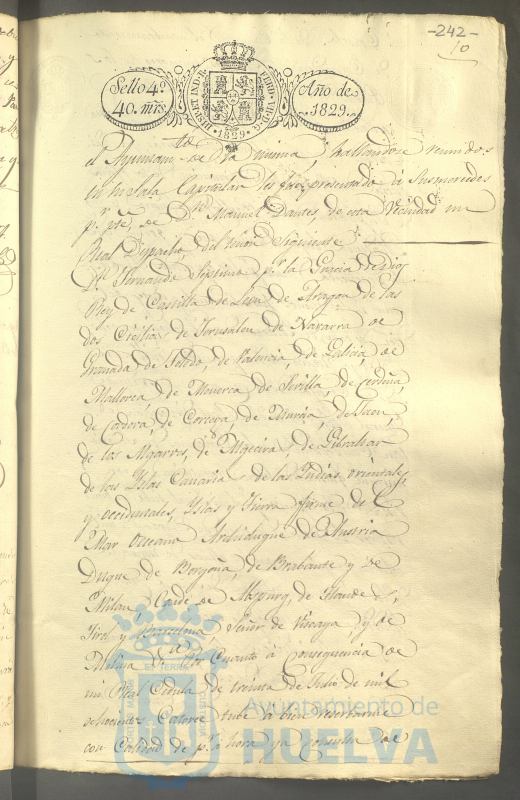 -242-
10
Sello 4º
40. mrs.
HISP. ET IND. R. FERD. VII. D. G.
1829
Año de
1829.
el Ayuntamto. de la misma, hallandose reunidos
en la Sala Capitular les fue presentado à Susmercedes
pr. pte. de Dn. Manuel Dantes, de esta Vecindad un
Real Despacho, del tenor Siguiente
Dn. Fernando Septimo pr. la Gracia de Dios
Rey de Castilla de Leon de Aragon de las
dos Cicilias de Jerusalen de Navarra de
Granada de Toledo, de Valencia, de Galicia, de
Mallorca, de Menorca de Sevilla, de Cerdeña,
de Cordova, de Corcega, de Murcia, de Jaen,
de los Algarves, de Algecira, de Gibraltar
de las Yslas Canaria, de las Yndias orientales,
y occidentales, Yslas y tierra firme de el
Mar occeano Archiduque de Austria
Duque de Borgoña, de Brabante y de
Milan Conde de Abspurg, de Flandes,
Tirol y Barcelona, Señor de Viscaya, y de
Molina &a. Por Cuanto à Consequencia de
mi Real Cedula de treinta de Julio de mil
ochocientos Catorce tube à bien reservarme
con Calidad de pr. à hora y à Consulta de
Ayuntamiento de
HUELVA